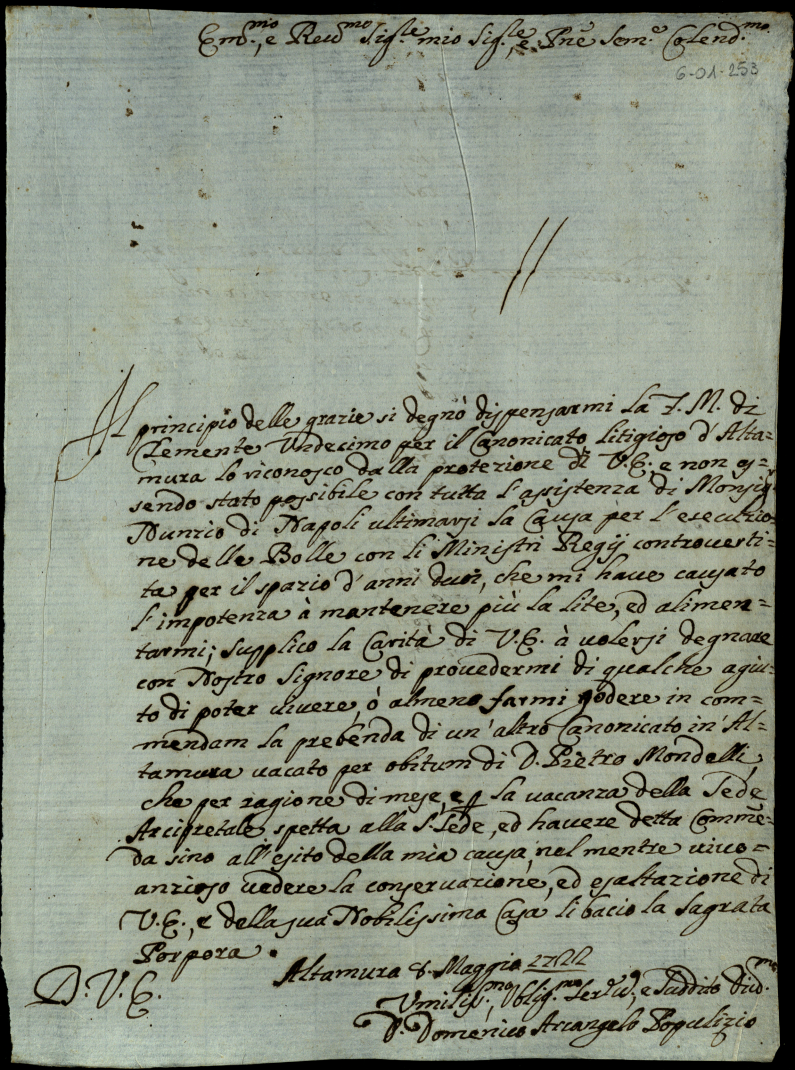 Em.mo, e Reu.mo Sig.re mio Sig.re, e Pnẽ Sem.e Colend.mo
6-01-253
Il principio delle grazie si degnò dispensarmi la F. M. di
Clemente Undecimo per il Canonicato litigioso d'Alta=
mura lo riconosco dalla protezione di V.E., e non es=
sendo stato possibile con tutta l'assistenza di Monsig.r
Nunzio di Napoli ultimarsi la Causa per l'esecuzio=
ne delle Bolle con li Ministri Regij controuerti=
ta per il spazio d'anni duoi, che mi haue causato
l'impotenza à mantenere più la lite, ed alimen=
tarmi; supplico la Carità di V.E. à uolersi degnare
con Nostro Signore di prouedermi di qualche agiu=
to di poter uiuere, ò almeno farmi godere in com=
mendam la prebenda di un'altro Canonicato in Al=
tamura uacato per obitum di D. Pietro Mondelli,
che per ragione di mese, e p la uacanza della Sede
Arcipretale spetta alla S. Sede, ed hauere detta Comme=
da sino all'esito della mia causa, nel mentre uiuo=
anzioso uedere la conseruazione, ed esaltazione di
V.E., e della sua Nobilissima Casa li bacio la Sagrata
Porpora.
Altamura 8. Maggio 1722
D. V. E.
Umiliss.mo, Oblig.mo Ser.re, e Suddito Diu.mo
D. Domenico Arcangelo Populizio